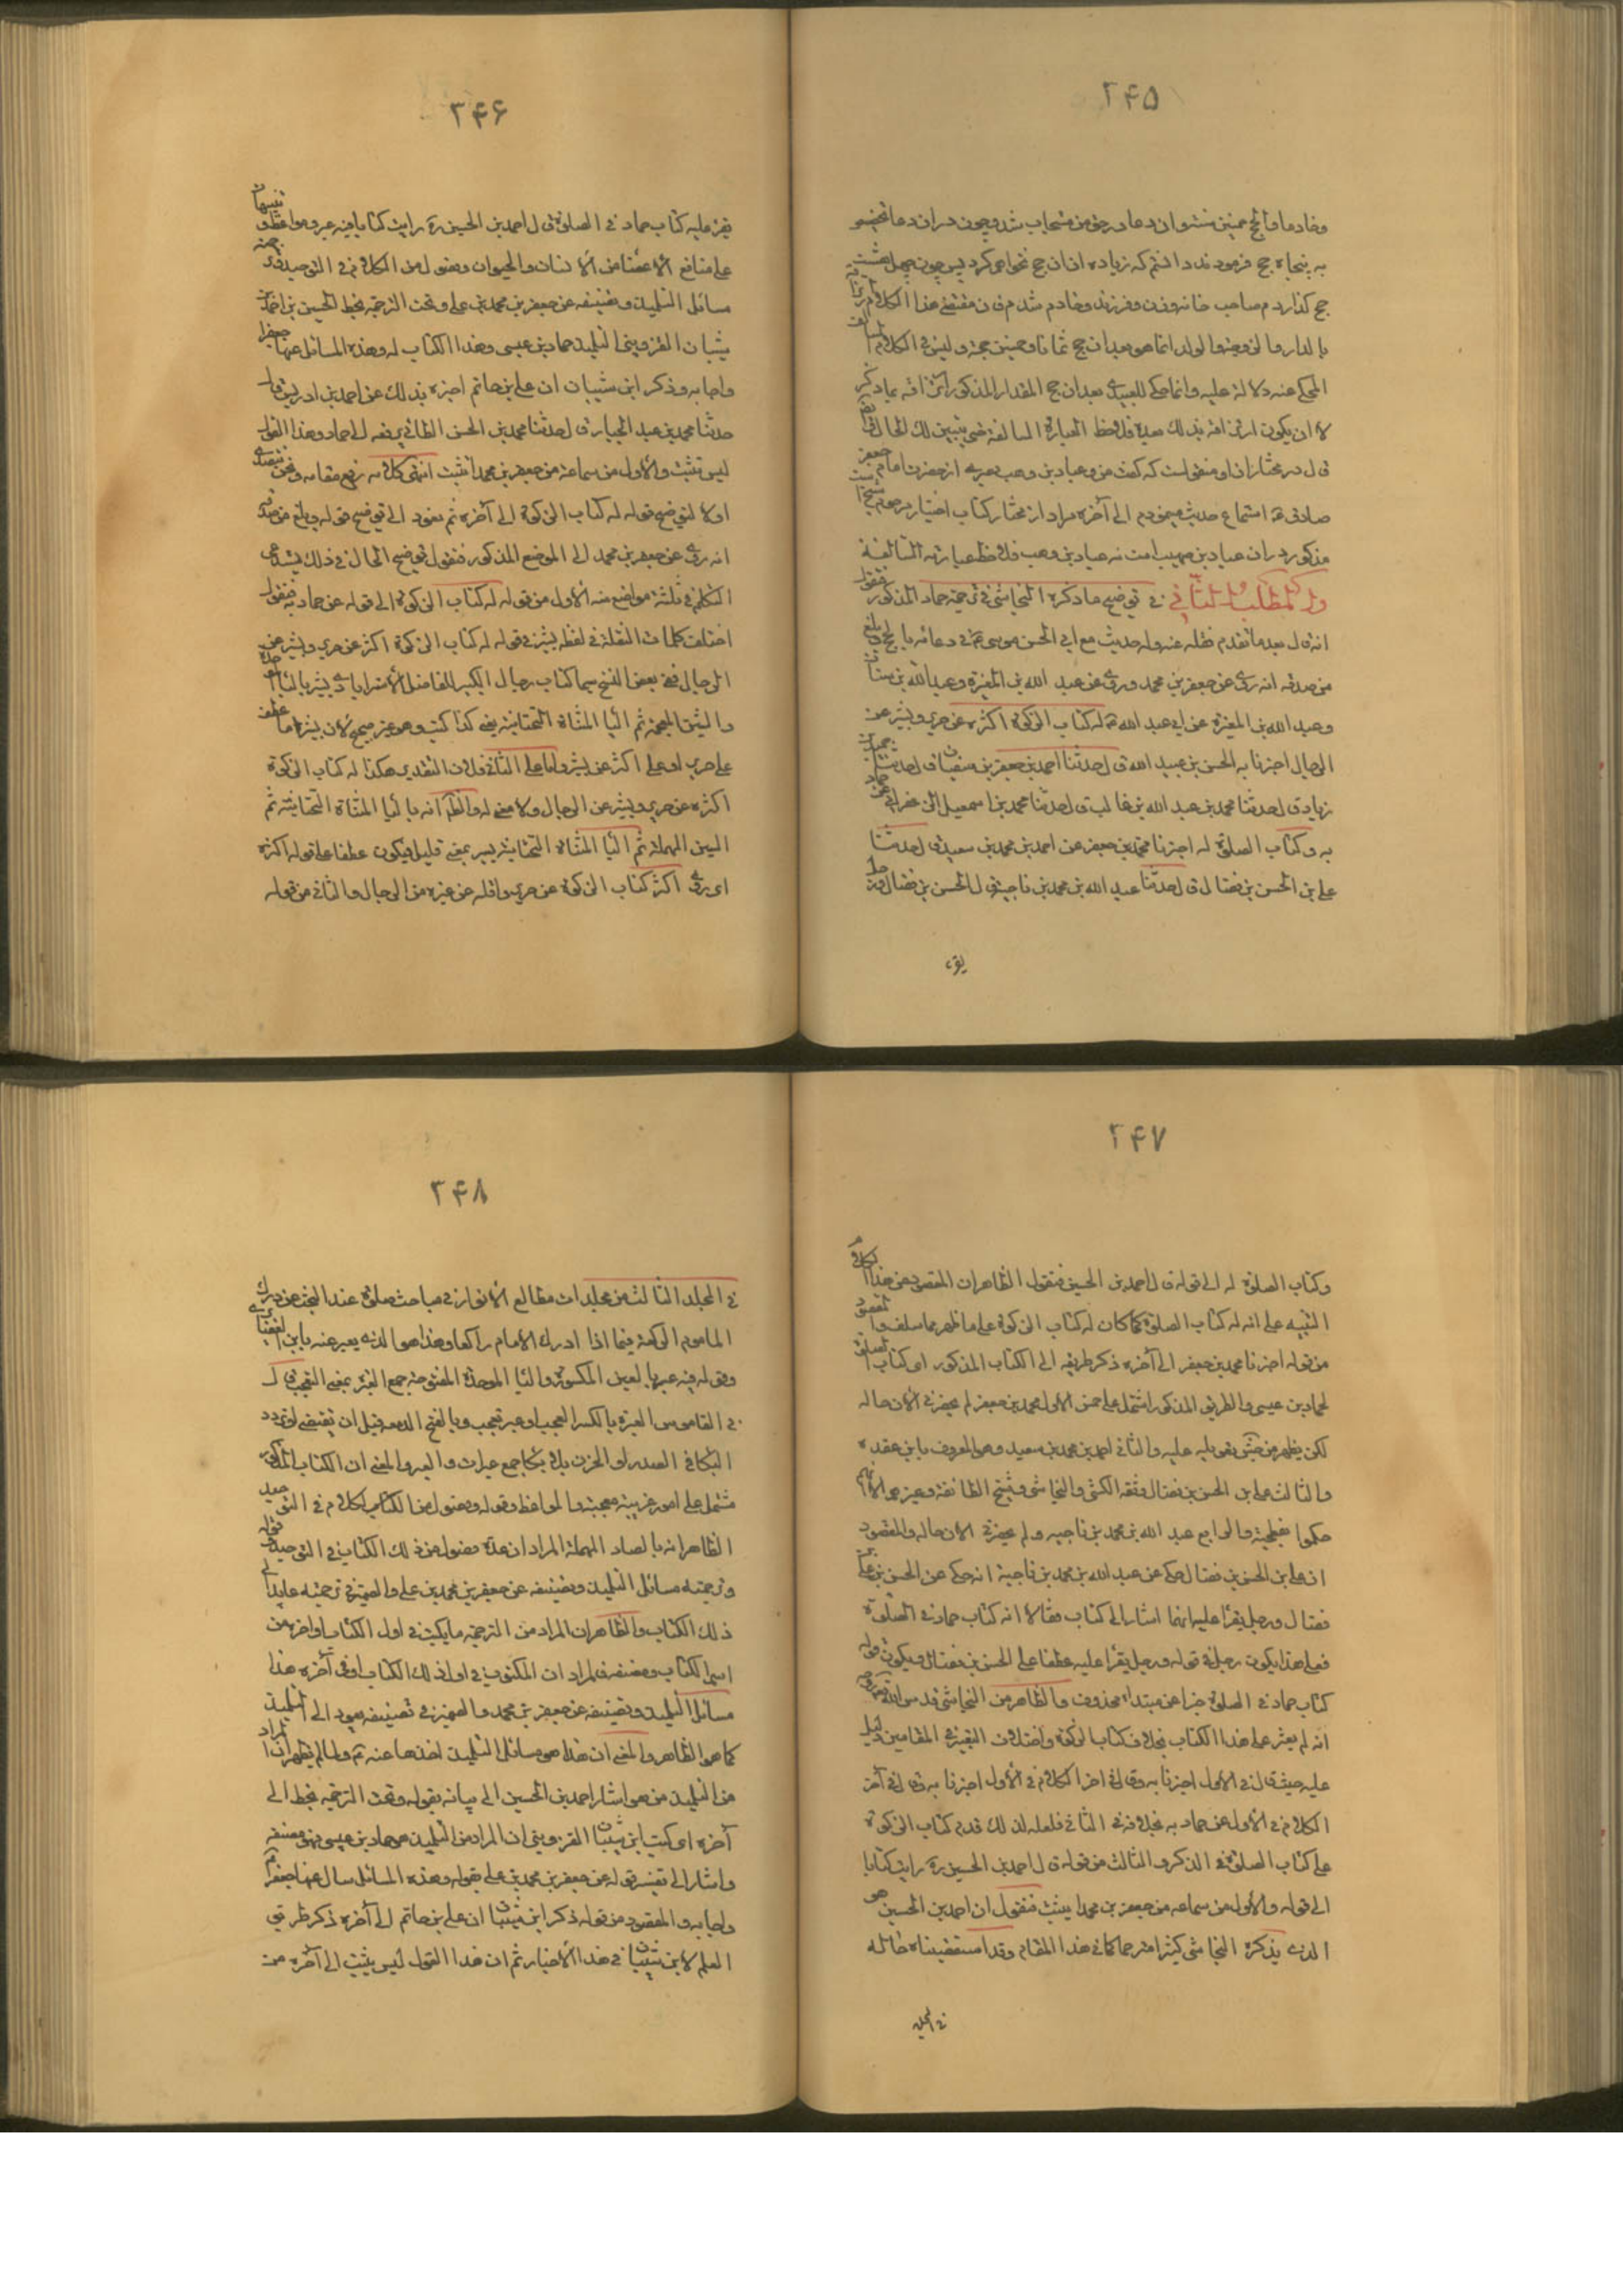 ۲۴۵
وخادما والحج خمسين سنة وان دعا در حق من مستجاب شد وچون در ان دعا تخصيص
به پنجاه حج فرمودند دانستم كه زياده از ان حج نخواهم كرد پس چون چهل هشت
حج كذاردم صاحب خانه وزن وفرزند وخادم شدم فان مقتضى هذا الكلام
بالدار والزوجة والولد انما هو بعد ان حج ثمانا وخمسين حجة وليس في الكلام
المحكي عنه دلالة عليه وانما حكى للعبيدي بعد ان حج المقدار المذكور
لا ان يكون بذلك بعده فلاحظ العبارة السالفة حتى يتبين لك الحال
قال در مختار از او منقول است كه كفت من وعباد بن وهب بصرى از حضرت امام جعفر
صادق ع استماع حديث مينموديم الى آخره مراد از مختار كتاب اختيار
مذكور در ان عباد بن صهيب است نه عباد بن وهب فلاحظ عبارته السالفة
واما المطلب الثاني في توضيح ما ذكره النجاشي في ترجمة حماد المذكور فنقول
انه قال بعد ما تقدم نقله عنه وله حديث مع ابي الحسن موسى ع في دعائه بالحج وبلغ
من صدقه انه روى عن جعفر بن محمد وروى عن عبد الله بن المغيرة وعبد الله بن سنان
وعبد الله بن المغيرة عن ابي عبد الله ع له كتاب الزكوة اكثره عن حريز وبشر عن
الرجال اخبرنا به الحسين بن عبيد الله قال حدثنا احمد بن جعفر بن سفيان قال حدثنا حميد بن
زياد قال حدثنا محمد بن عبد الله بن غالب قال حدثنا محمد بن اسمعيل الزعفراني عن حماد
به وكتاب الصلوة له اخبرنا محمد بن جعفر عن احمد بن محمد بن سعيد قال حدثنا
علي بن الحسن بن فضال قال حدثنا عبد الله بن محمد بن ناجية قال الحسن بن فضال ورجل
يقرء
۲۴۶
يقرء عليه كتاب حماد في الصلوة قال احمد بن الحسين ره رايت كتابا فيه عبر ومواعظ وتنبيهات
على منافع الاعضاء من الانسان والحيوان وفصول من الكلام في التوحيد وترجمته
مسائل التلميذ وتصنيفه عن جعفر بن محمد بن علي وتحت الترجمة بخط الحسين بن احمد بن
شيبان القزويني التلميذ حماد بن عيسى وهذا الكتاب له وهذه المسائل سال عنها جعفرا
واجابه وذكر ابن شيبان ان علي بن حاتم اخبره بذلك عن احمد بن ادريس قال
حدثنا محمد بن عبد الجبار قال حدثنا محمد بن الحسن الطائي رفعه الى حماد وهذا القول
ليس بثبت والاول من سماعه من جعفر بن محمد اثبت انتهى كلامه رفع مقامه ونحن نتصدى
اولا لتوضيح قوله له كتاب الزكوة الى آخره ثم نعود الى توضيح قوله وبلغ من صدقه
انه روى عن جعفر بن محمد الى الموضع المذكور فنقول توضيح الحال في ذلك يستدعي
التكلم في ثلثة مواضع منه الاول من قوله له كتاب الزكوة الى قوله عن حماد به فنقول
اختلف كلمات النقلة في لفظ يشير في قوله له كتاب الزكوة اكثره عن حريز وبشر عن
الرجال ففي بعض النسخ سيما كتاب رجال الكبير للفاضل الاسترابادي بشر بالباء
والشين المعجمة ثم الياء المثناة التحتانية هكذا كتب وهو غير صحيح لان بشر اما عطف
على حريز او على اكثره عن بشر واما على الثاني فلان التقدير هكذا له كتاب الزكوة
اكثره عن حريز وبشر عن الرجال ولا معنى له والظاهر انه بالياء المثناة التحتانية ثم
السين المهملة ثم الياء المثناة التحتانية يسير بمعنى قليل فيكون عطفا على قوله اكثره
اى روى اكثر كتاب الزكوة عن حريز واقله عن غيره من الرجال والثاني من قوله
۲۴۷
وكتاب الصلوة له الى قوله قال احمد بن الحسين فنقول الظاهر ان المقصود من هذا الكلام
التنبيه على انه له كتاب الصلوة كما كان له كتاب الزكوة على ما ظهر مما سلف والمقصود
من قوله اخبرنا محمد بن جعفر الى آخره ذكر طريقه الى الكتاب المذكور اى كتاب الصلوة
لحماد بن عيسى والطريق المذكور اشتمل على خمس الاول محمد بن جعفر لم يحضرني الان حاله
لكن يظهر من حتى تعويله عليه والثاني احمد بن محمد بن سعيد وهو المعروف بابن عقدة
والثالث علي بن الحسن بن فضال وثقه الكشي والنجاشي وشيخ الطائفة وغيرهم الا انهم
حكموا بفطحيته والرابع عبد الله بن محمد بن ناجيه ولم يحضرني الان حاله والمقصود
ان علي بن الحسن بن فضال حكى عن عبد الله بن محمد بن ناجية انه حكى عن الحسن بن علي بن
فضال ورجل يقرا عليه انهما اشارا الى كتاب فقالا انه كتاب حماد في الصلوة
فعلى هذا يكون رجل في قوله ورجل يقرا عليه عطفا على الحسن بن فضال ويكون قوله
كتاب حماد في الصلوة خبرا عن مبتداء محذوف والظاهر من النجاشي قدس الله روحه
انه لم يعثر على هذا الكتاب بخلاف كتاب الزكوة واختلاف التعبير في المقامين دليل
عليه حيث قال في الاول اخبرنا به وقال في اخر الكلام في الاول اخبرنا به وقال في آخر
الكلام في الاول عن حماد به بخلافه في الثاني فلعله لذلك قدم كتاب الزكوة
على كتاب الصلوة في الذكر والثالث من قوله قال احمد بن الحسين ره رايت كتابا
الى قوله والاول من سماعه من جعفر بن محمد اثبت فنقول ان احمد بن الحسين هو
الذى يذكره النجاشي كثيرا مترحما كما في هذا المقام وقد استقصيناه حاله
في المجلد
۲۴۸
في المجلد الثالث من مجلدات مطالع الانوار في مباحث صلوة عند البحث عن درك
الماموم الركعة فيما اذا ادرك الامام راكعا وهذا هو الذى يعبر عنه بابن الغضائرى
وقوله فيه عبر بالعين المكسورة والباء الموحدة المفتوحة جمع العبرة بمعنى التعجب قال
في القاموس العبرة بالكسر العجب واعبر تعجب وبالفتح الدمعة قبل ان تفيض او تردد
البكاء في الصدر او الحزن بلا بكاء جمع عبرات والعبر والمعنى ان الكتاب المذكور
مشتمل على امور غريبة معجبة والمواعظ وقوله وفصول من الكتاب كلام في التوحيد
الظاهر انه بالصاد المهملة المراد ان عدة فصول من ذلك الكتاب في التوحيد قوله
وترجمته مسائل التلميذ وتصنيفه عن جعفر بن محمد بن علي والضمير في ترجمته عايد الى
ذلك الكتاب والظاهر ان المراد من الترجمة ما يكتب في اول الكتاب او اخره من
اسم الكتاب ومصنفه فالمراد ان المكتوب في اول ذلك الكتاب او في آخره هذا
مسائل التلميذ وتصنيفه عن جعفر بن محمد والضمير في تصنيفه يعود الى التلميذ
كما هو الظاهر والمعنى ان هذا هو مسائل التلميذ اخذها عنه ع ولما لم يظهر ان المراد
من التلميذ من هو اشار احمد بن الحسين الى بيانه بقوله وتحت الترجمة بخط الى
آخره اى كتب ابن شيبان القزويني ان المراد من التلميذ هو حماد بن عيسى فهو مصنفه
واشار الى تفسير قوله عن جعفر بن محمد بن علي بقوله وهذه المسائل سال عنها جعفرا
واجابه والمقصود من قوله ذكر ابن شيبان ان علي بن حاتم الى آخره ذكر طريق
العلم لابن شيبان في هذا الاخبار ثم ان هذا القول ليس بثبت الى آخره من